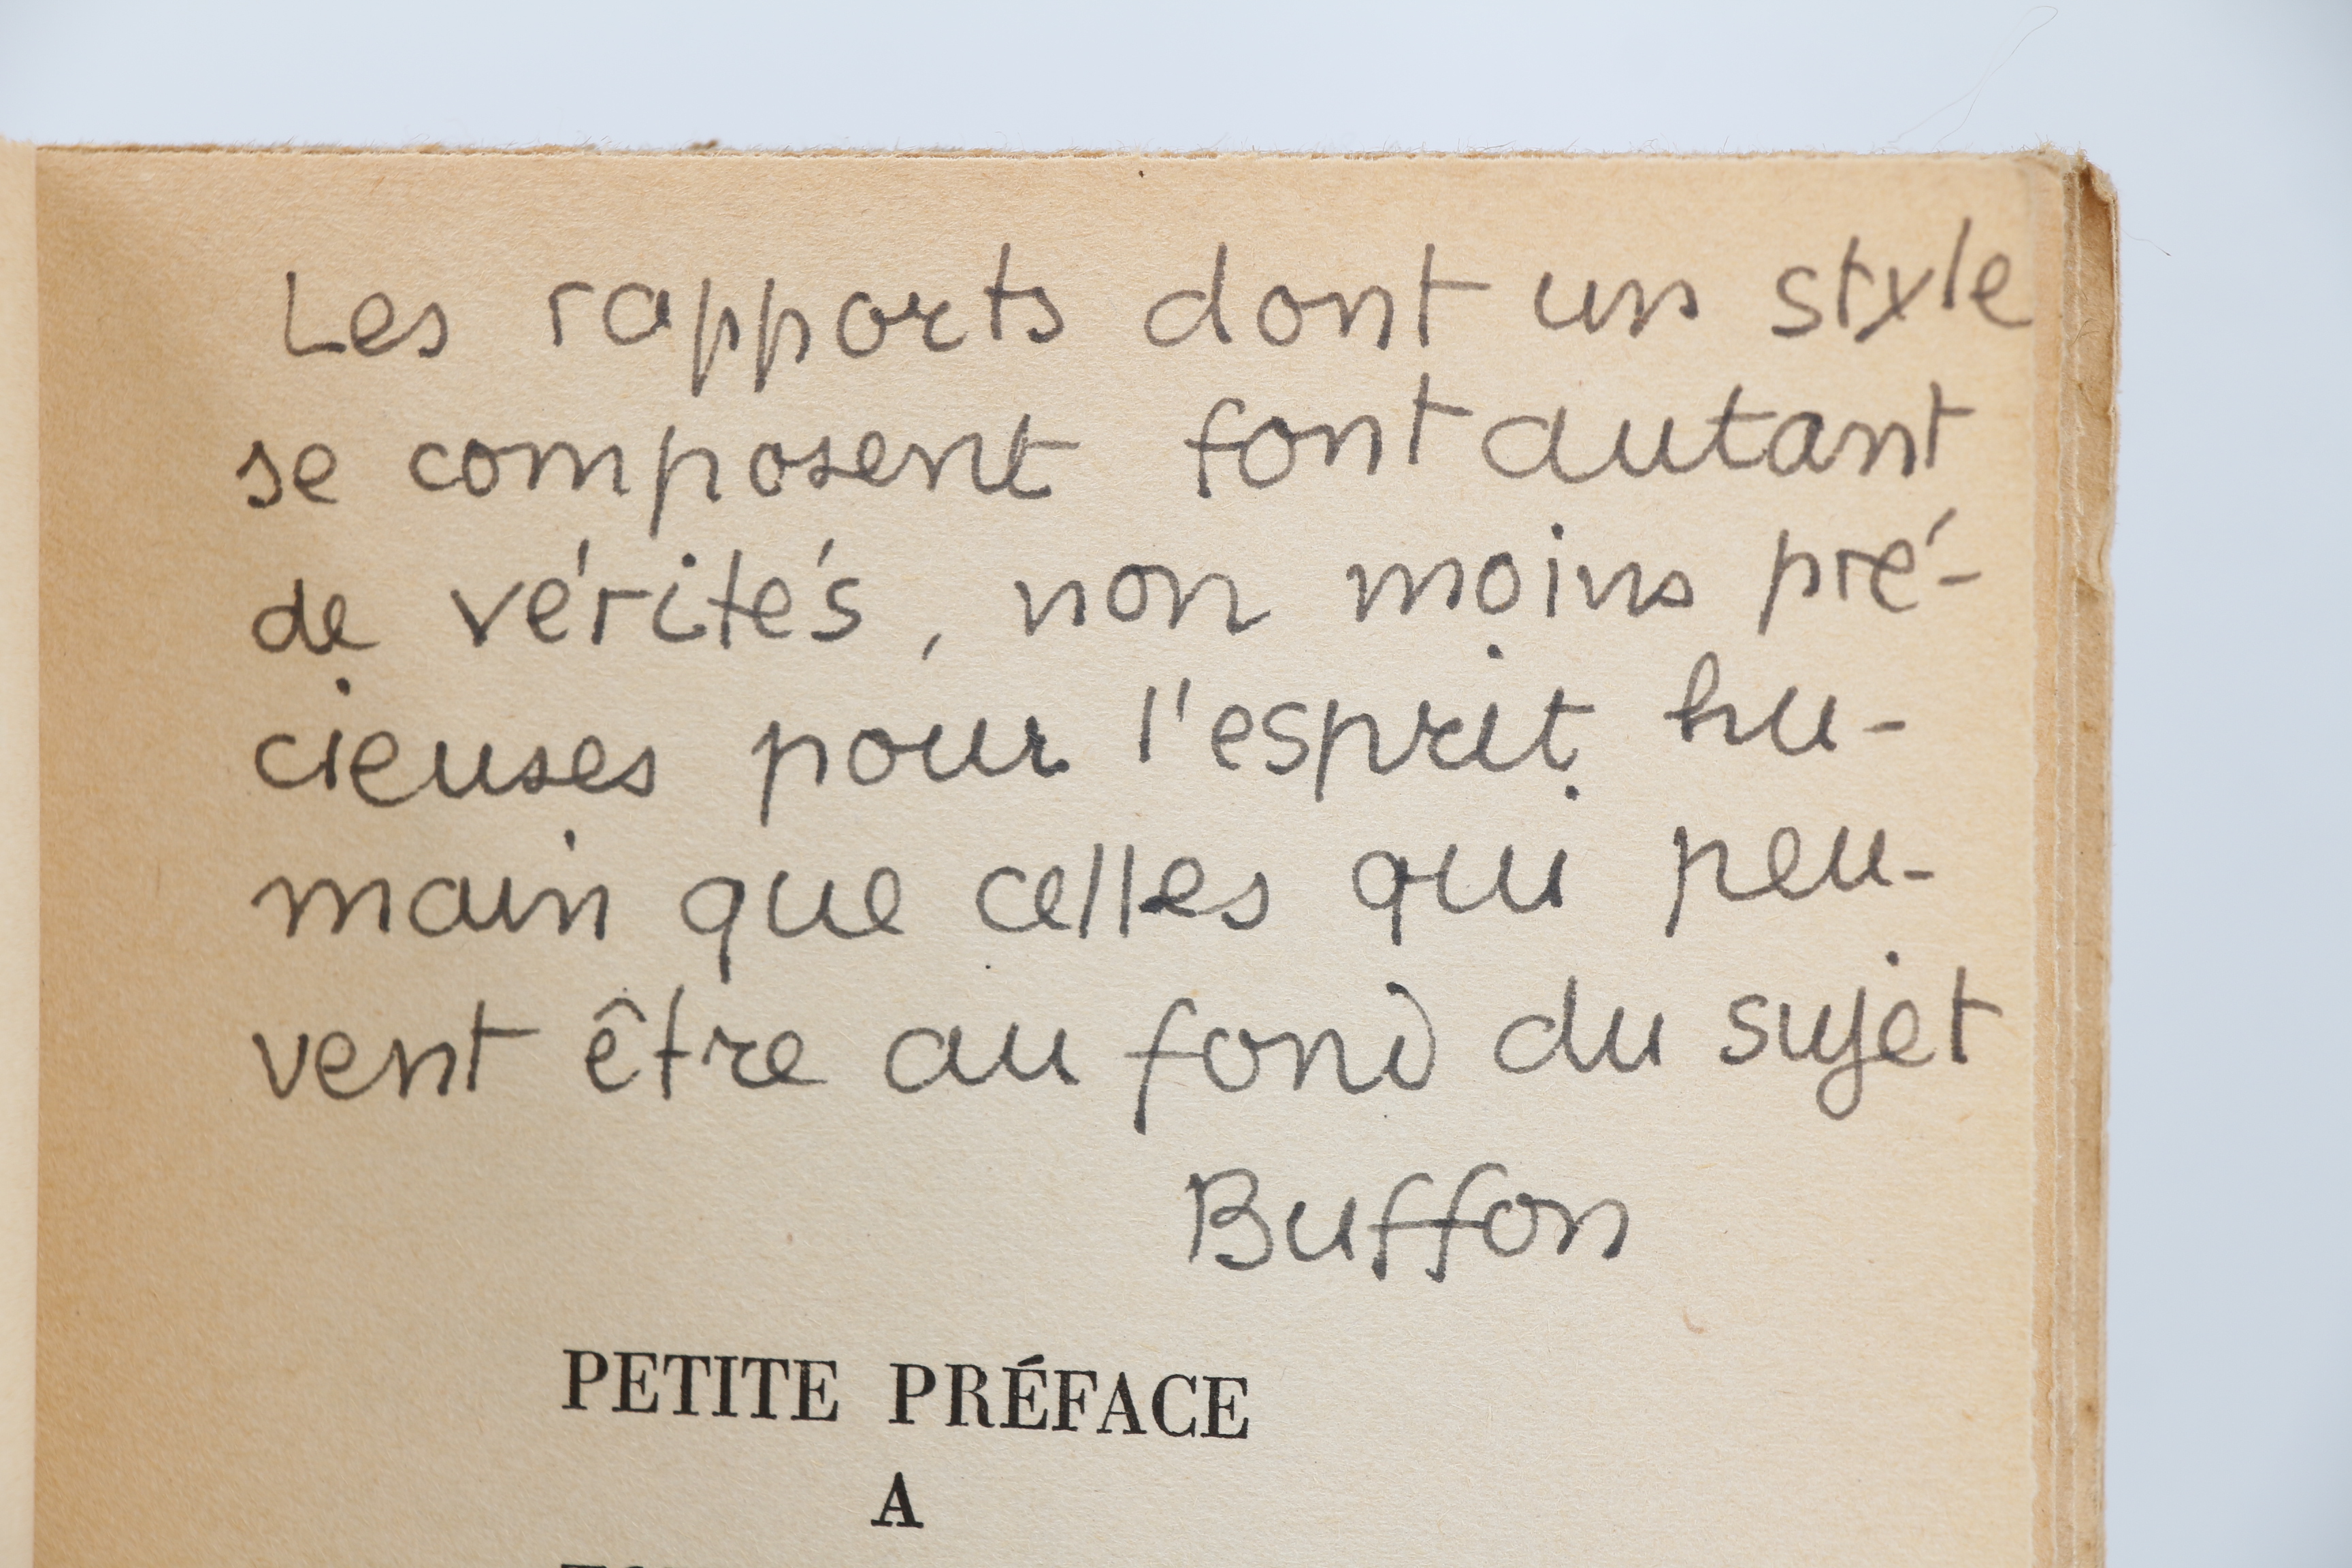 Les rapports dont un style
se composent font autant
de vérités, non moins pré-
cieuses pour l'esprit hu-
main que celles qui peu-
vent être au fond du sujet
Buffon
PETITE PRÉFACE
A